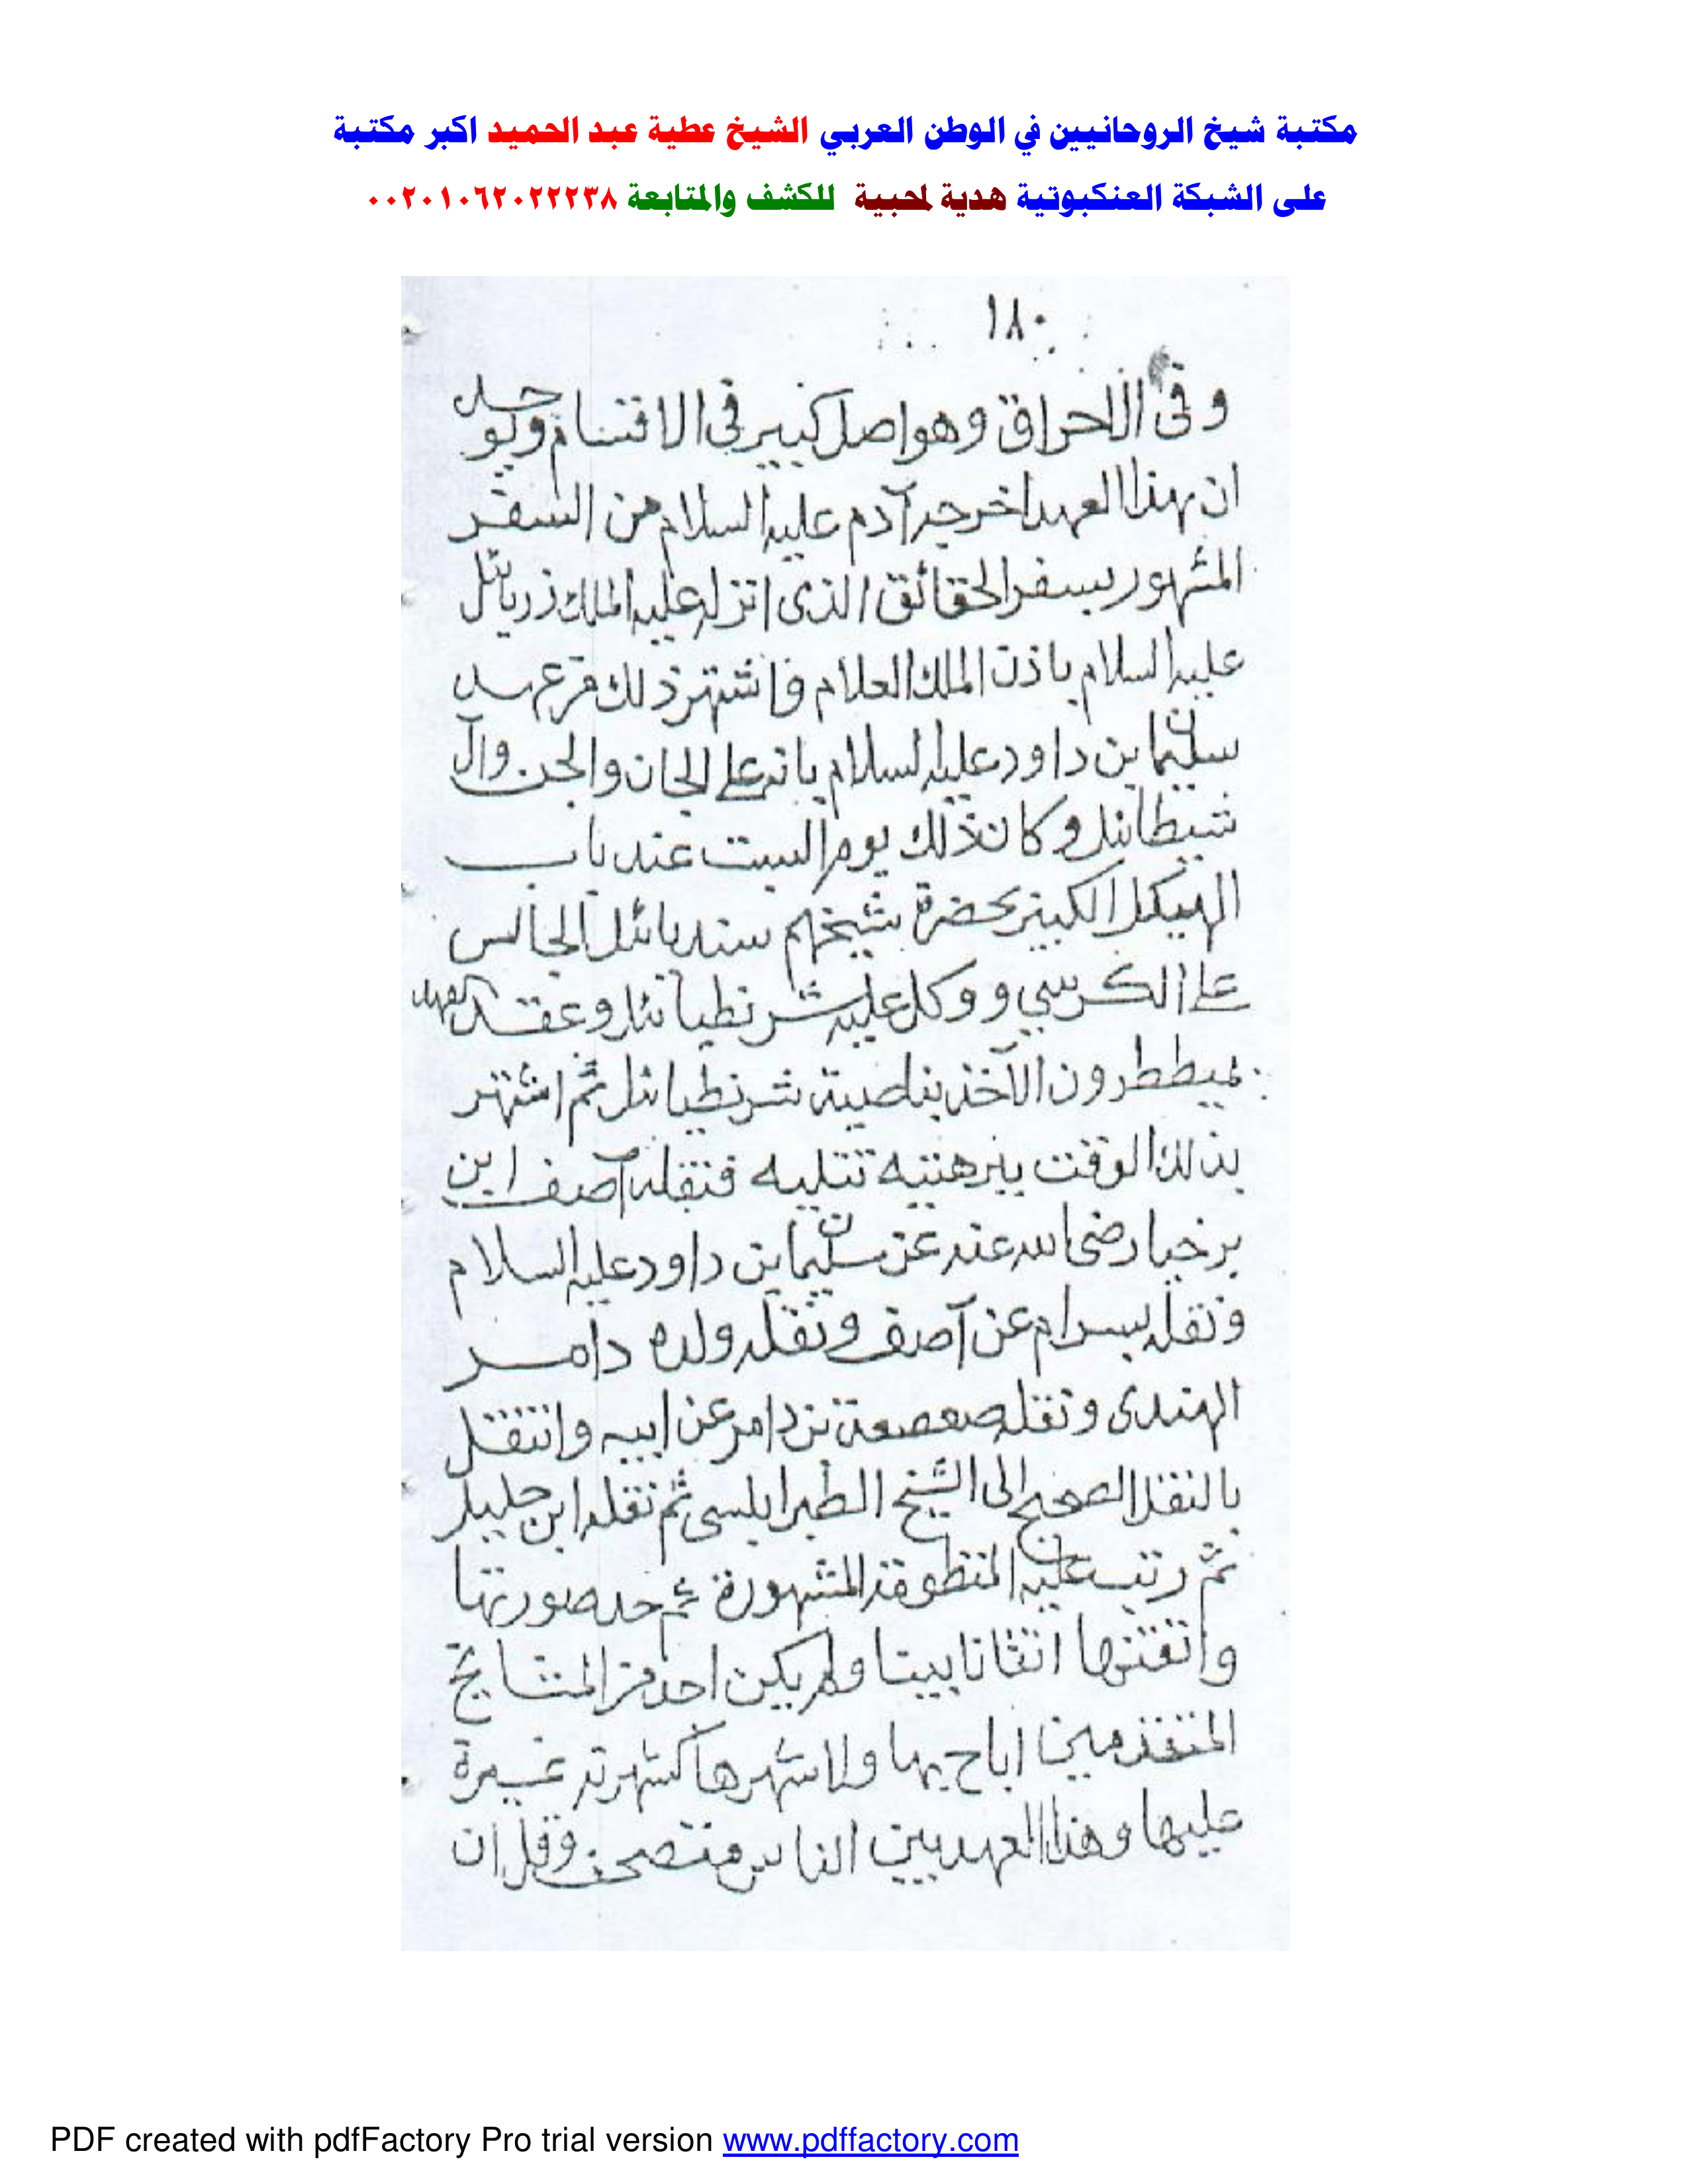 مكتبة شيخ الروحانيين في الوطن العربي الشيخ عطية عبد الحميد اكبر مكتبة
على الشبكة العنكبوتية هدية لمحبية للكشف والمتابعة ٠٠٢٠١٠٦٢٠٢٢٢٣٨
١٨٠
وفى الاحراق وهو اصل كبير فى الاقتسام ويوجد
ان هذا العهد اخرجه آدم عليه السلام من السفر
المشهور بسفر الحقائق الذى انزله عليه الملك زريائل
عليه السلام باذن الملك العلام فاشتهر ذلك من عهد
سليمان بن داود عليه السلام بانه على الجان والجن وال
شيطانيل وكان ذلك يوم السبت عند باب
الهيكل الكبير بحضرة شيخهم سندبائل الجالس
على الكرسي ووكل عليه شرنطيائل وعقد العهد
بميططرون الآخذ بناصية شرنطيائل ثم اشتهر
بذلك الوقت ببرهتيه تتليه فنقله آصف ابن
برخيا رضى الله عنه عن سليمان بن داود عليه السلام
ونقله بيسرام عن آصف ونقله ولده دامر
الهندى ونقله صعصعة بن دامر عن ابيه وانتقل
بالنقل الصحيح الى الشيخ الطبرابلسى ثم نقله ابن جليل
ثم رتب عليه المنظومة المشهورة صورتها
واتقنها اتقانا بيتا ولم يكن احد من المشايخ
المتقدمين اباح بها ولا شهرها كشهرته غيرة
عليها وهذا العهد بين الناس متصحف وقل ان
PDF created with pdfFactory Pro trial version www.pdffactory.com